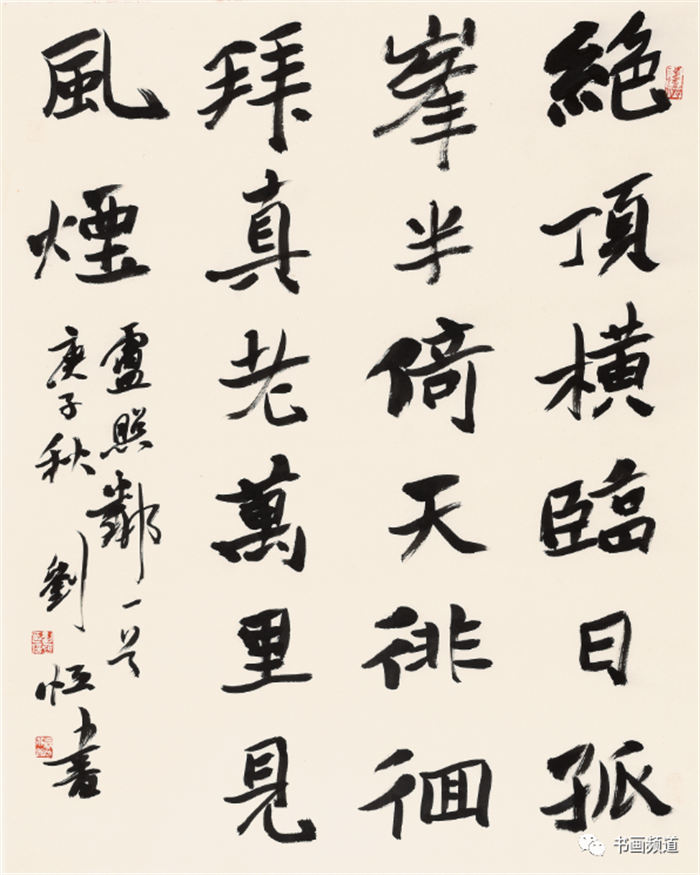 絶頂橫臨日孤
峯半倚天徘徊
拜真老萬里見
風煙
盧照鄰一首
庚子秋劉恒書
书画频道